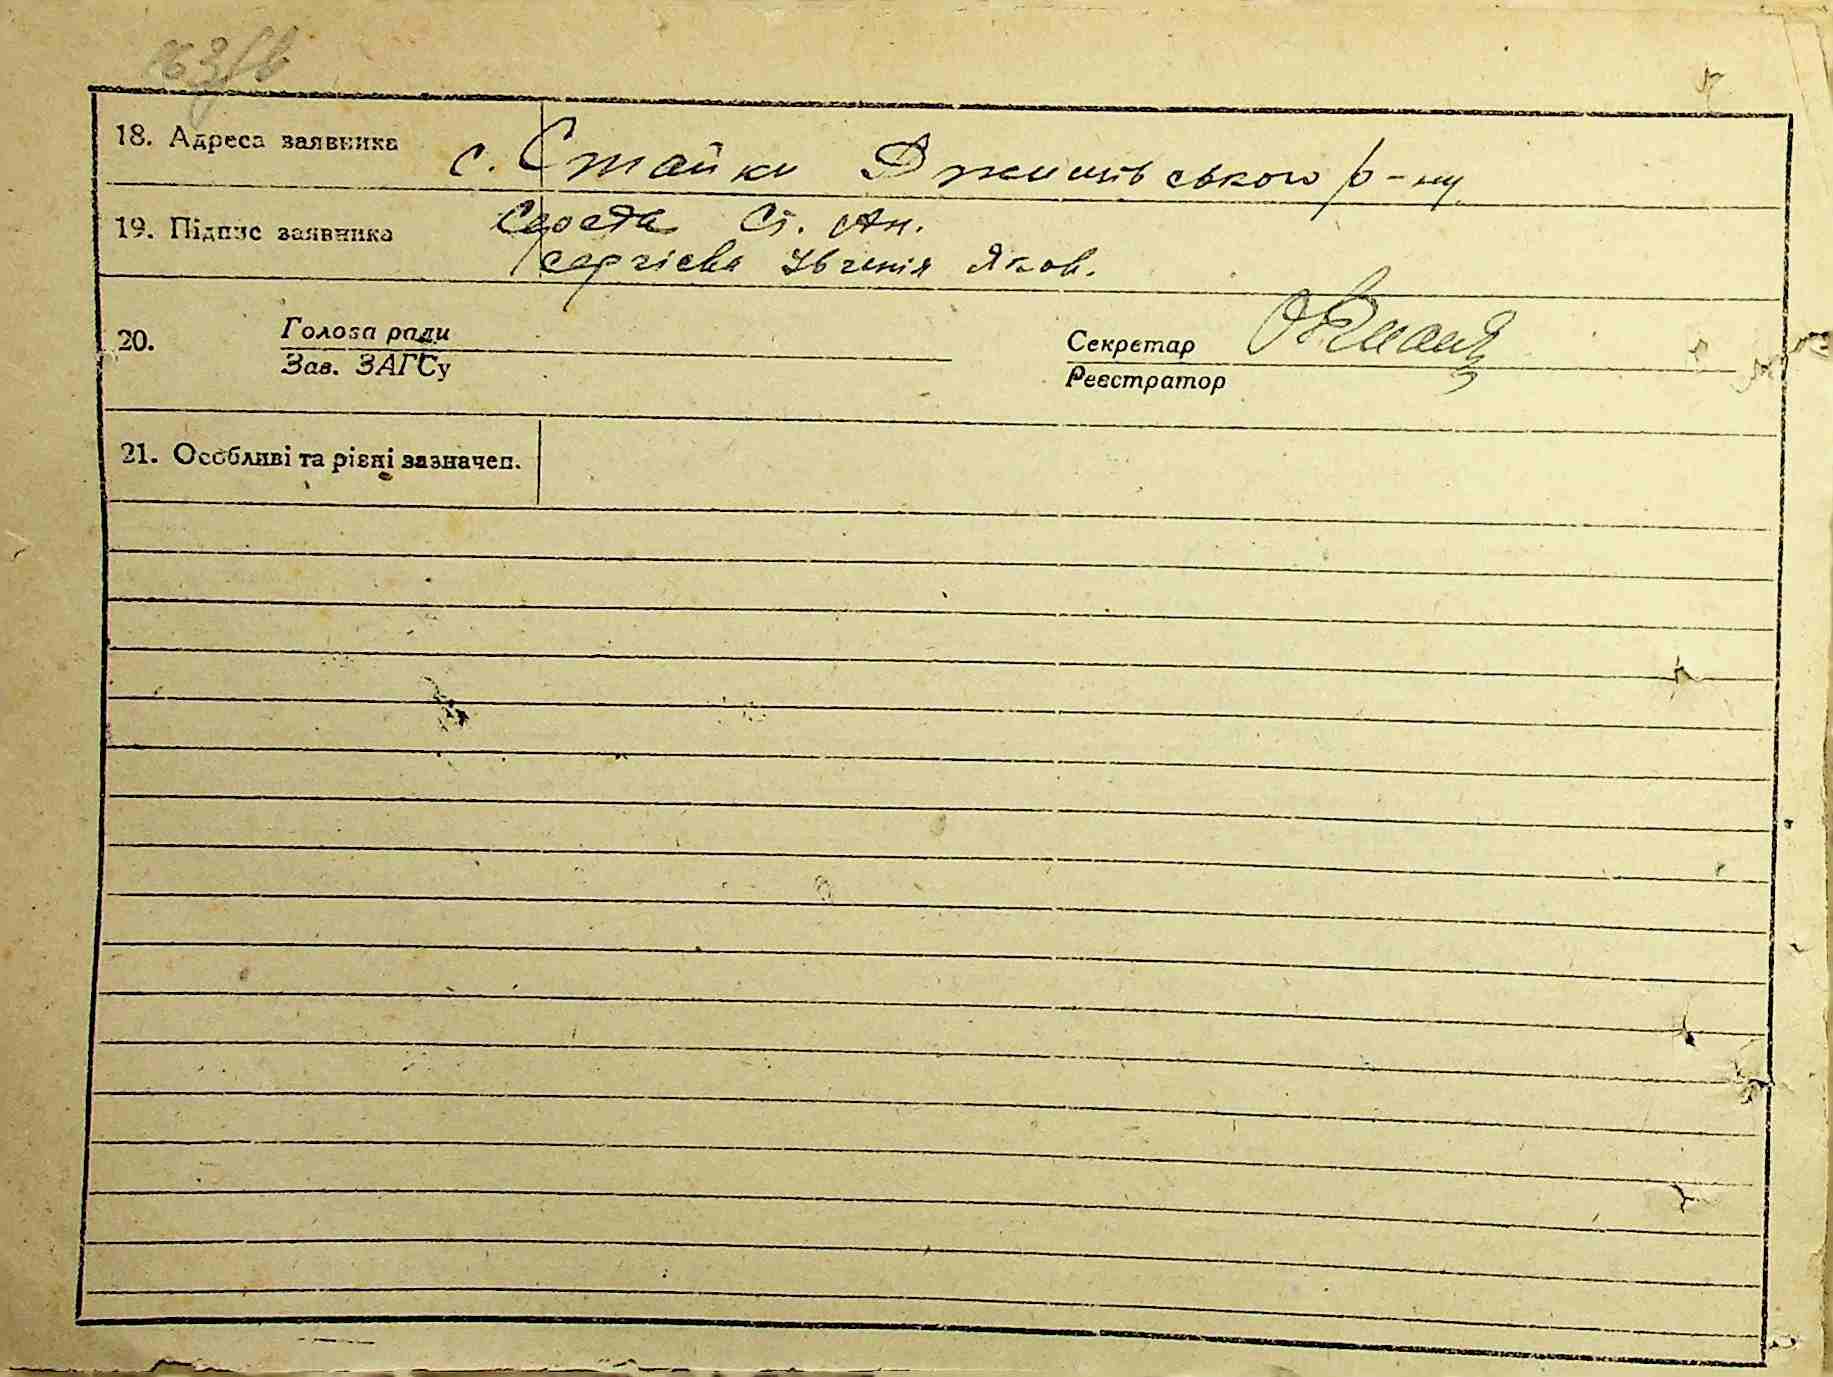 18. Адреса заявника с. Стайки Ржищівського р-ну
19. Підпис заявника Сірота Ст. Ан.
Сергієва Ївгенія Яков.
20. Голова ради Секретар
Зав. ЗАГСу Реєстратор
21. Особливі та різні зазначен.